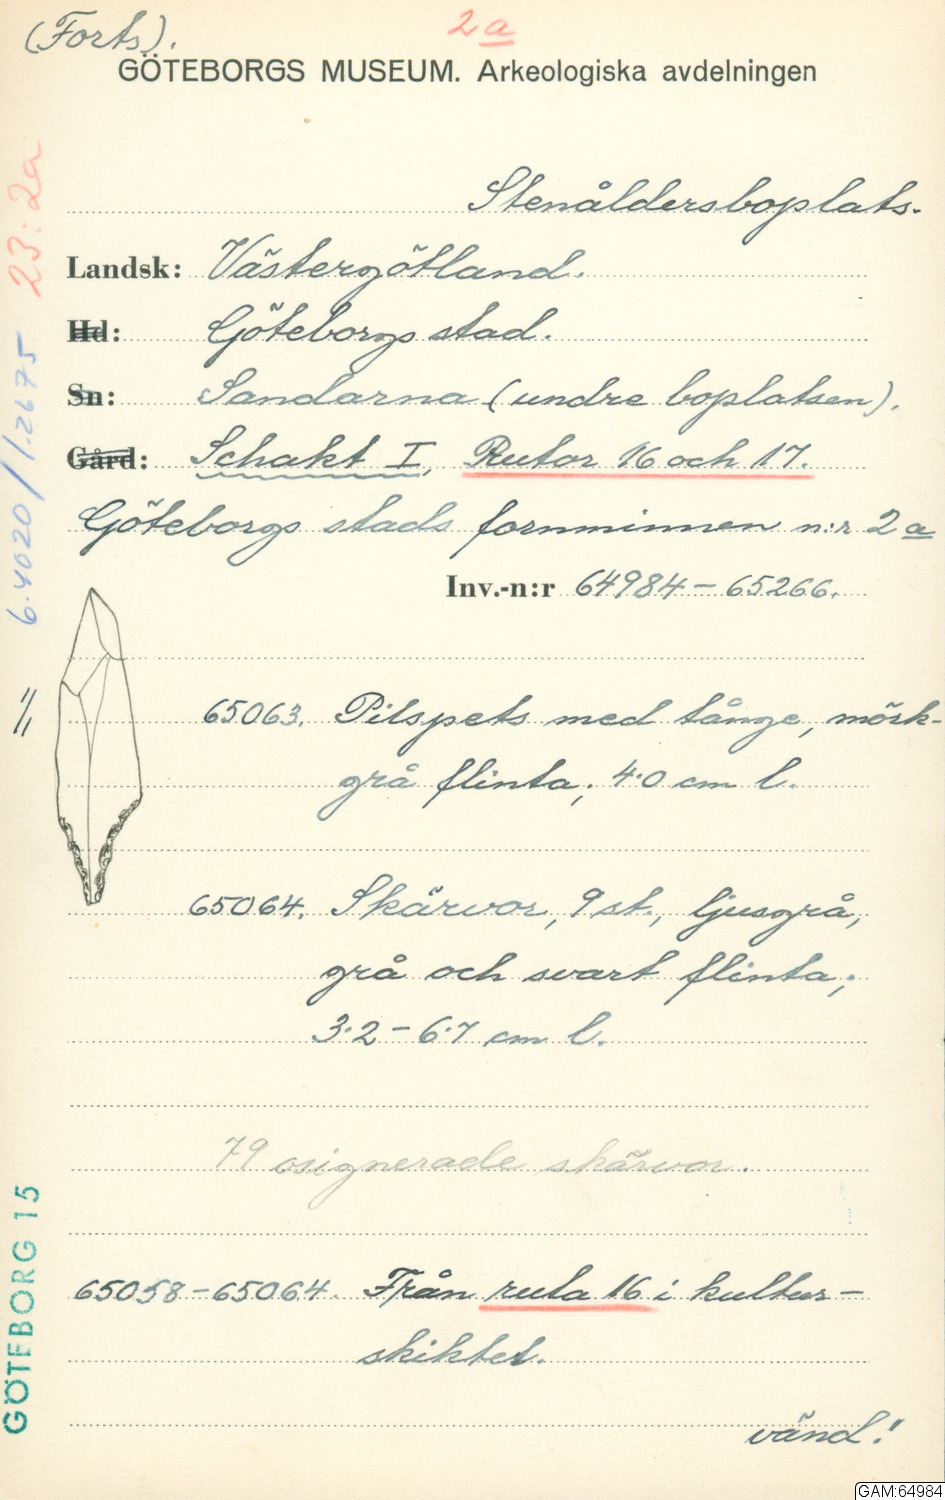 (Forts).
2a
GÖTEBORGS MUSEUM. Arkeologiska avdelningen
Stenåldersboplats.
Landsk: Västergötland.
Hd: Göteborgs stad.
Sn: Sandarna (undre boplatsen).
Gård: Schakt I, Rutor 16 och 17.
Göteborgs stads fornminnen n:r 2a
Inv.-n:r 64984-65266.
65063. Pilspets med tånge, mörk-
grå flinta; 4·0 cm l.
65064. Skärvor, 9 st., ljusgrå,
grå och svart flinta;
3·2 - 6·7 cm l.
79 osignerade skärvor.
65058-65064. Från ruta 16 i kultur-
skiktet.
vänd!
23:2a
6.4020/1.2675
1/1
GÖTEBORG 15
GAM:64984